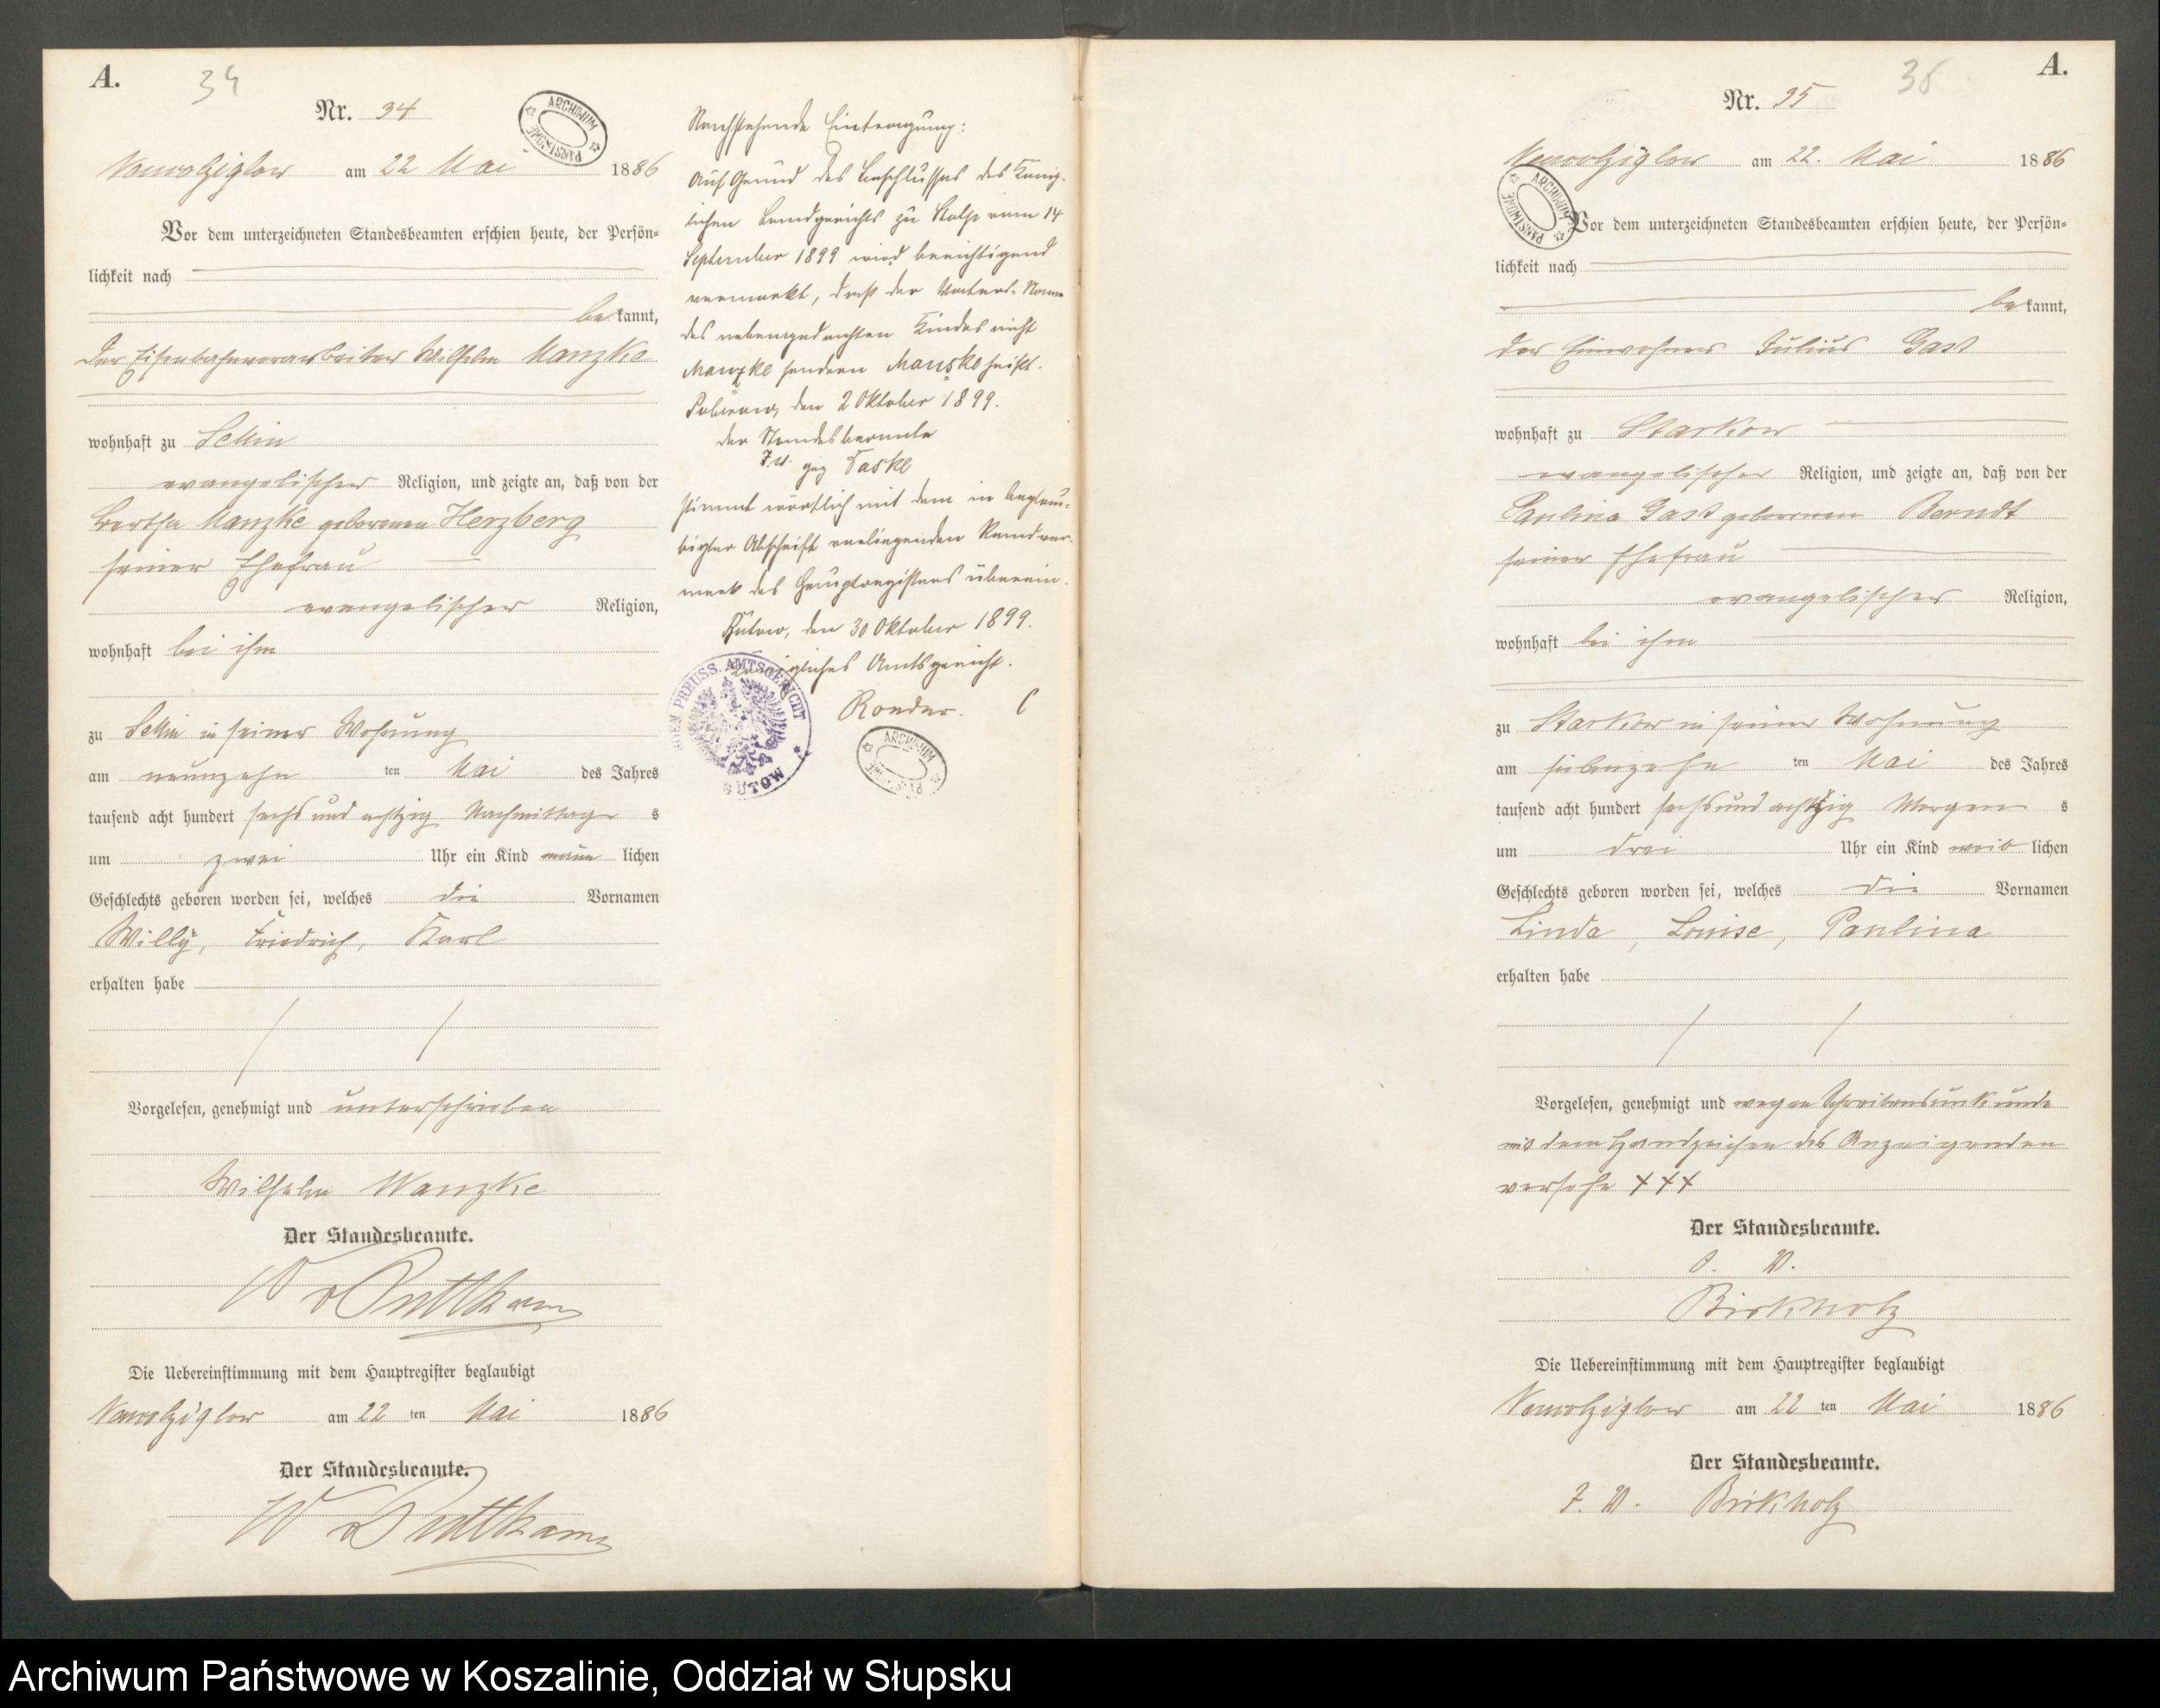 A.
34
Nr. 34
am 22 Mai 1886
Vor dem unterzeichneten Standesbeamten erschien heute, der Persön=
lichkeit nach
be kannt,
der Eisenbahnvorarbeiter Wilhelm Manzke
wohnhaft zu Sellin
evangelischer Religion, und zeigte an, daß von der
Bertha Manzke geborenen Herzberg
seiner Ehefrau
evangelischer Religion,
wohnhaft bei ihm
zu Sellin in seiner Wohnung
am neunzehn ten Mai des Jahres
tausend acht hundert sechs und achtzig Nachmittag s
um zwei Uhr ein Kind männ lichen
Geschlechts geboren worden sei, welches die Vornamen
Willy, Friedrich, Karl
erhalten habe
Vorgelesen, genehmigt und unterschrieben
Wilhelm Manzke
Der Standesbeamte.
W v Puttkamer
Die Uebereinstimmung mit dem Hauptregister beglaubigt
am 22 ten Mai 1886
Der Standesbeamte.
W v Puttkamer
ARCHIWUM PAŃSTWOWE
Nachstehende Eintragung:
Auf Grund des Beschlusses des König-
lichen Landgerichts zu Stolp vom 14
September 1899 wird berichtigend
vermerkt, daß der Vaters-Name
des nebengedachten Kindes nicht
Manzke sondern Manske heißt.
den 2 Oktober 1899.
der Standesbeamte
J.V. gez Taske
stimmt wörtlich mit dem in beglau-
bigter Abschrift vorliegenden Randver-
merk des Hauptregisters überein.
Bütow, den 30 Oktober 1899.
Königliches Amtsgericht.
PREUSS. AMTSGERICHT
BÜTOW
ARCHIWUM PAŃSTWOWE
A.
35
Nr. 35
am 22. Mai 1886
ARCHIWUM PAŃSTWOWE
Vor dem unterzeichneten Standesbeamten erschien heute, der Persön=
lichkeit nach
be kannt,
der Einwohner Julius Gast
wohnhaft zu Starkow
evangelischer Religion, und zeigte an, daß von der
Paulina Gast geborenen Berndt
seiner Ehefrau
evangelischer Religion,
wohnhaft bei ihm
zu Starkow in seiner Wohnung
am siebenzehn ten Mai des Jahres
tausend acht hundert sechs und achtzig Morgen s
um drei Uhr ein Kind weib lichen
Geschlechts geboren worden sei, welches die Vornamen
Linda, Louise, Paulina
erhalten habe
Vorgelesen, genehmigt und wegen Schreibensunkunde
mit dem Handzeichen des Anzeigenden
versehen +++
Der Standesbeamte.
J. V.
Birkholz
Die Uebereinstimmung mit dem Hauptregister beglaubigt
am 22 ten Mai 1886
Der Standesbeamte.
J. V. Birkholz
Archiwum Państwowe w Koszalinie, Oddział w Słupsku